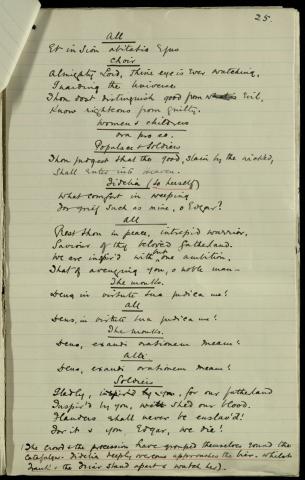 25.
All
Et in Sion abitatio Ejus
Choir
Almighty Lord, Thine eye is ever watching,
Guarding the Universe
Thou dost distinguish good from evil,
Know righteous from guilty.
Women & children
ora pro eo.
Populace & Soldiers
Thou judgest that the good, slain by the wicked,
Shall enter into heaven.
Fidelia (to herself)
What comfort in weeping
For grief such as mine, o Edgar?
All
Rest thou in peace, intrepid warrior,
Saviour of thy beloved fatherland.
We are inspir'd with but one ambition,
That of avenging you, o noble man—
The monks.
Deus in virtute tua judica me!
All
Deus, in virtute tua judica me!
The monks.
Deus, exaudi orationem meam!
All
Deus, exaudi orationem meam!
Soldiers
Gladly, for our fatherland
Inspir'd by you, we'll shed our blood.
Flanders shall never be enslav'd!
For it & you Edgar, we die!
(The crowd & the procession have grouped themselves round the
catafalque. Fidelia deeply overcome approaches the bier, whilst
Frank & the Friar stand apart & watch her).